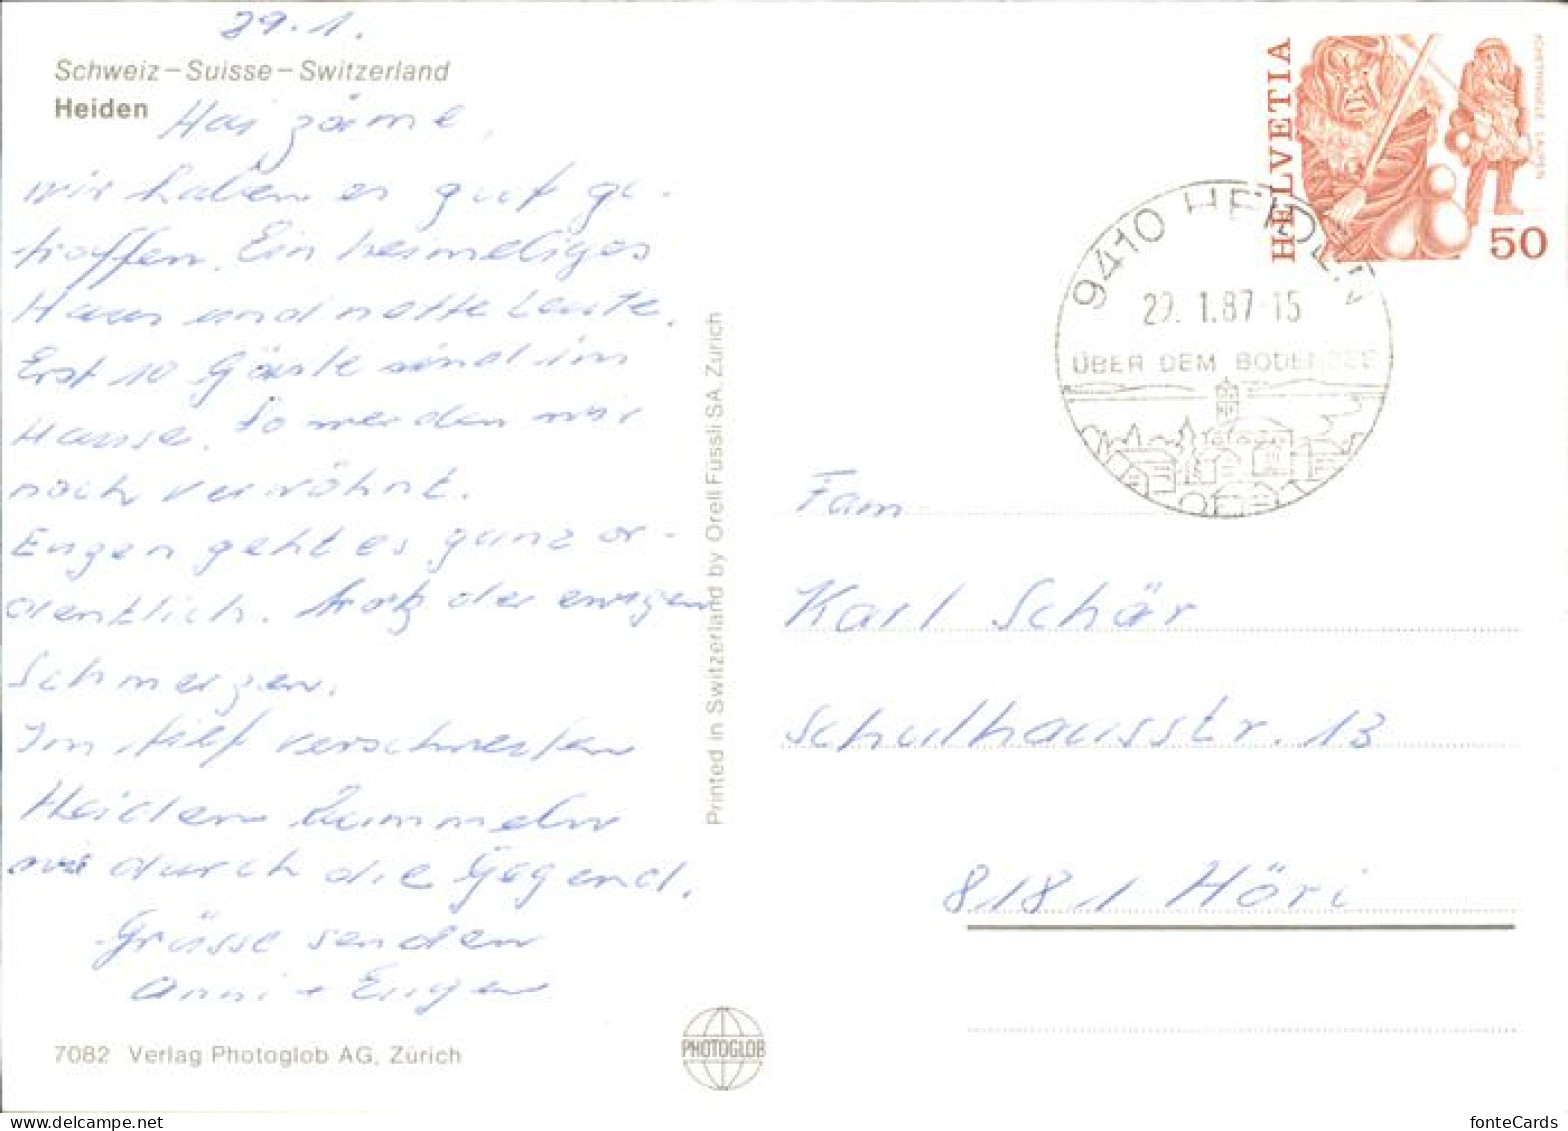 29.1.
Schweiz – Suisse – Switzerland
Heiden
Hai zäme,
wir haben es gut ge-
troffen. Ein heimeliges
Haus und nette Leute.
Erst 10 Gäste sind im
Hause. So werden wir
noch verwöhnt.
Eugen geht es ganz or-
dentlich. trotz der ewigen
Schmerzen.
Im tief verschneiten
Heiden bummeln
wir durch die Gegend.
Grüsse senden
Anni + Eugen
7082 Verlag Photoglob AG, Zürich
Printed in Switzerland by Orell Füssli SA, Zürich
PHOTOGLOB
HELVETIA
50
9410 HEIDEN
29. 1.87-15
ÜBER DEM BODENSEE
Fam
Karl Schär
Schulhausstr. 13
8181 Höri
www.delcampe.net
fonteCards